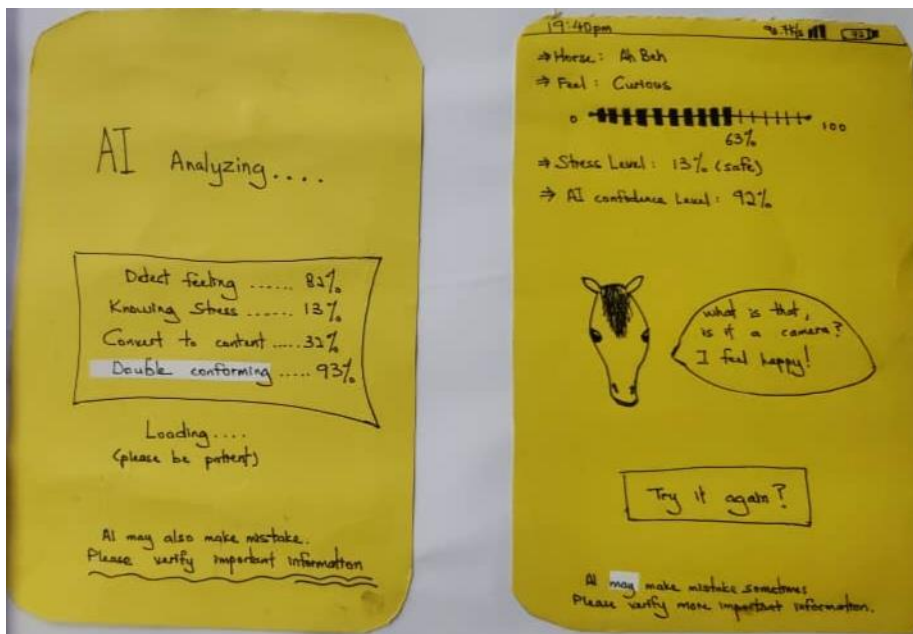 AI Analyzing....
Detect feeling ...... 82%
Knowing Stress ...... 13%
Convert to content ..... 32%
Double conforming ..... 93%
Loading....
(please be patient)
AI may also make mistake.
Please verify important information
19:40pm
92
⇒ Horse: Ah Beh
⇒ Feel: Curious
0 100
63%
⇒ Stress Level: 13% (safe)
⇒ AI confidence Level: 92%
what is that,
is it a camera?
I feel happy!
Try it again?
AI may make mistake sometimes
Please verify more important information.